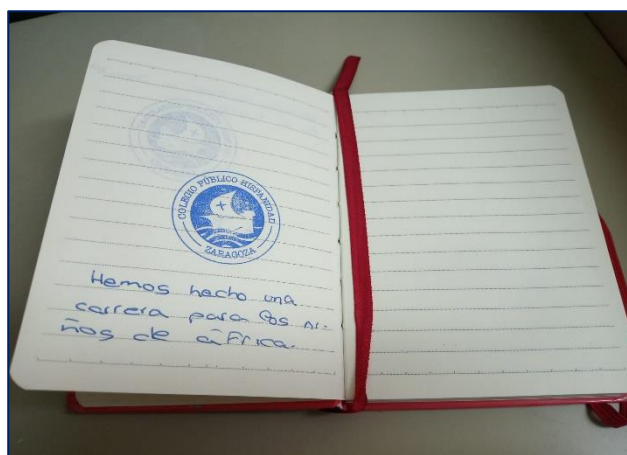 COLEGIO PÚBLICO HISPANIDAD
ZARAGOZA
Hemos hecho una
carrera para los ni-
ños de áfrica.